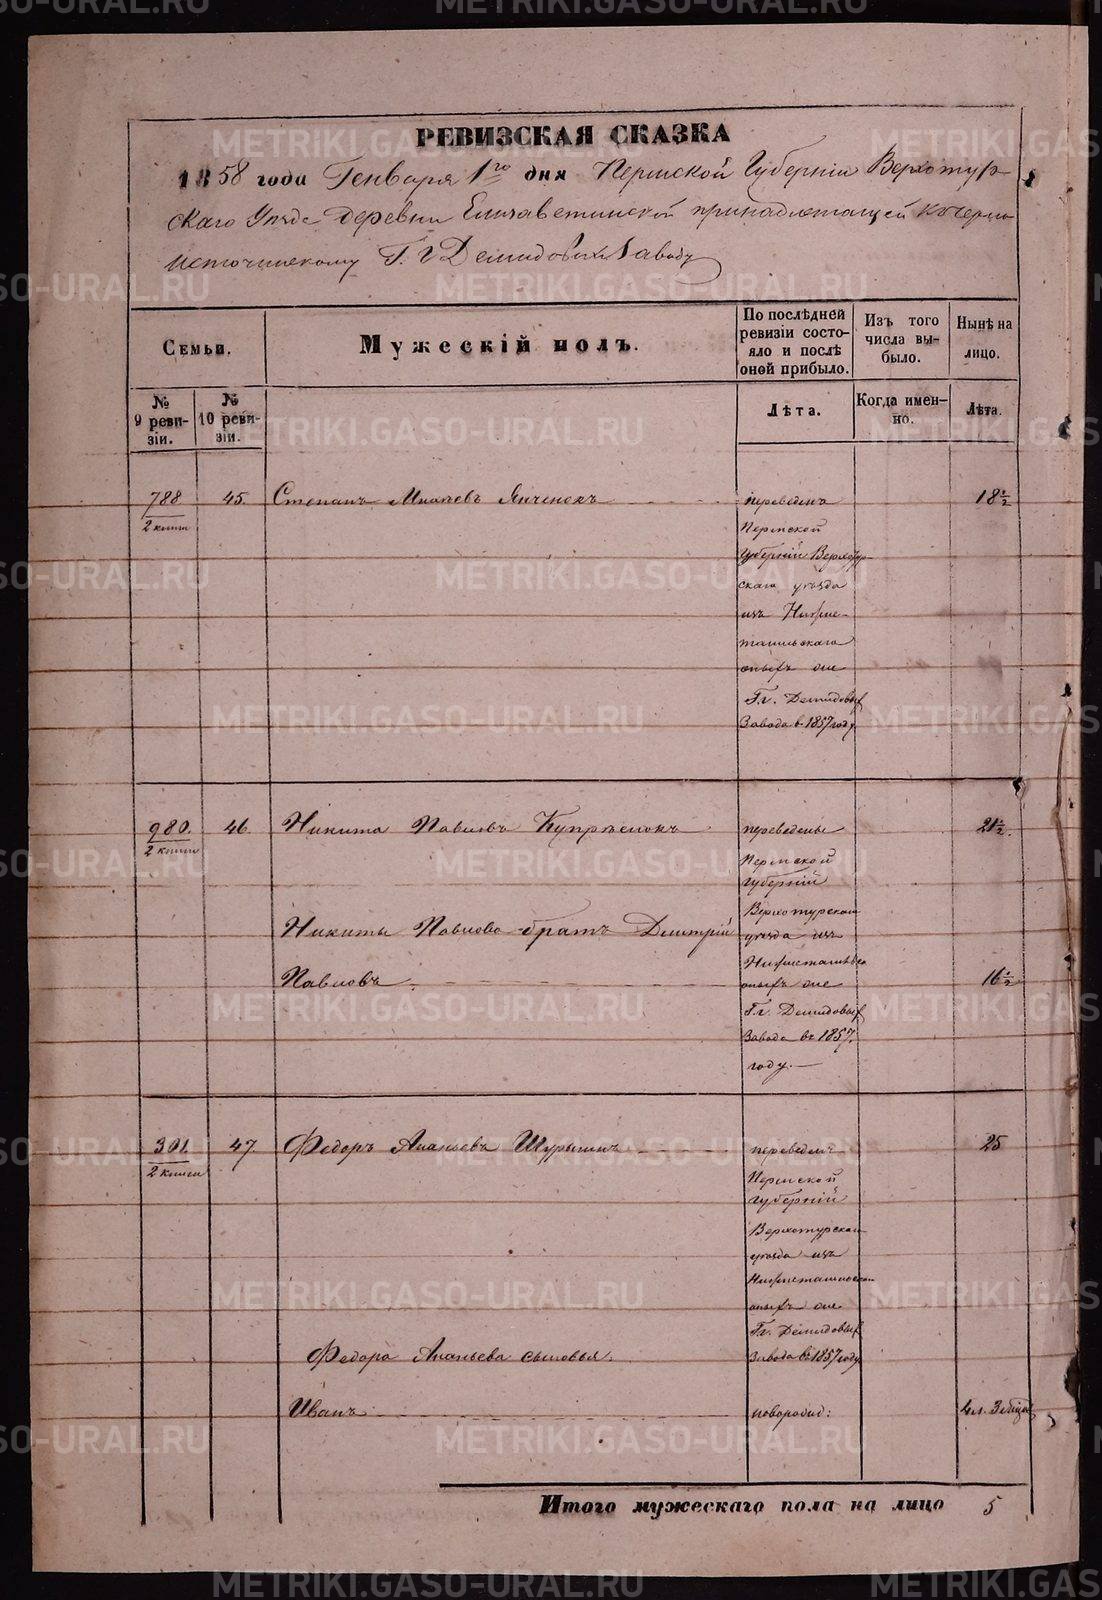 РЕВИЗСКАЯ СКАЗКА
1858 года Генваря 1го дня Пермской Губерніи Верхотур-
скаго Уѣзда деревни Елизаветинской принадлежащей къ Черно-
источинскому Г. г Демидовыхъ Заводу
Семьи.
Мужескій полъ.
По послѣдней ревизіи состо-
яло и послѣ
оной прибыло.
Изъ того
числа вы-
было.
Нынѣ на
лицо.
№
9 реви-
зіи.
№
10 реви-
зіи.
Лѣта.
Когда имен-
но.
Лѣта.
788
2 книги
45.
Степанъ Яченокъ
18 ½
переведенъ
Пермской
Губерніи Верхотур-
скаго уѣзда
изъ Нижне-
тагильскаго
Г.г. Демидовыхъ
Завода в 1857 году
980.
2 книги
46.
Никита Павловъ
21 ½.
переведены
Пермской
губерніи
Верхотурскаго
уѣзда изъ
Нижнетагильска
Г.г. Демидовыхъ
Завода въ 1857.
году.
Никиты Павлова братъ Дмитрій
Павловъ
16 ½
301.
2 книги
47.
Федоръ Ананьевъ Шурыгинъ
25
переведенъ
Пермской
губерніи
Верхотурскаго
уѣзда изъ
Нижнетагильскаго
Г.г. Демидовыхъ
Завода въ 1857 году
Федора Ананьева сыновья:
Иванъ
новорожд:
Итого мужескаго пола на лицо 5
METRIKI.GASO-URAL.RU